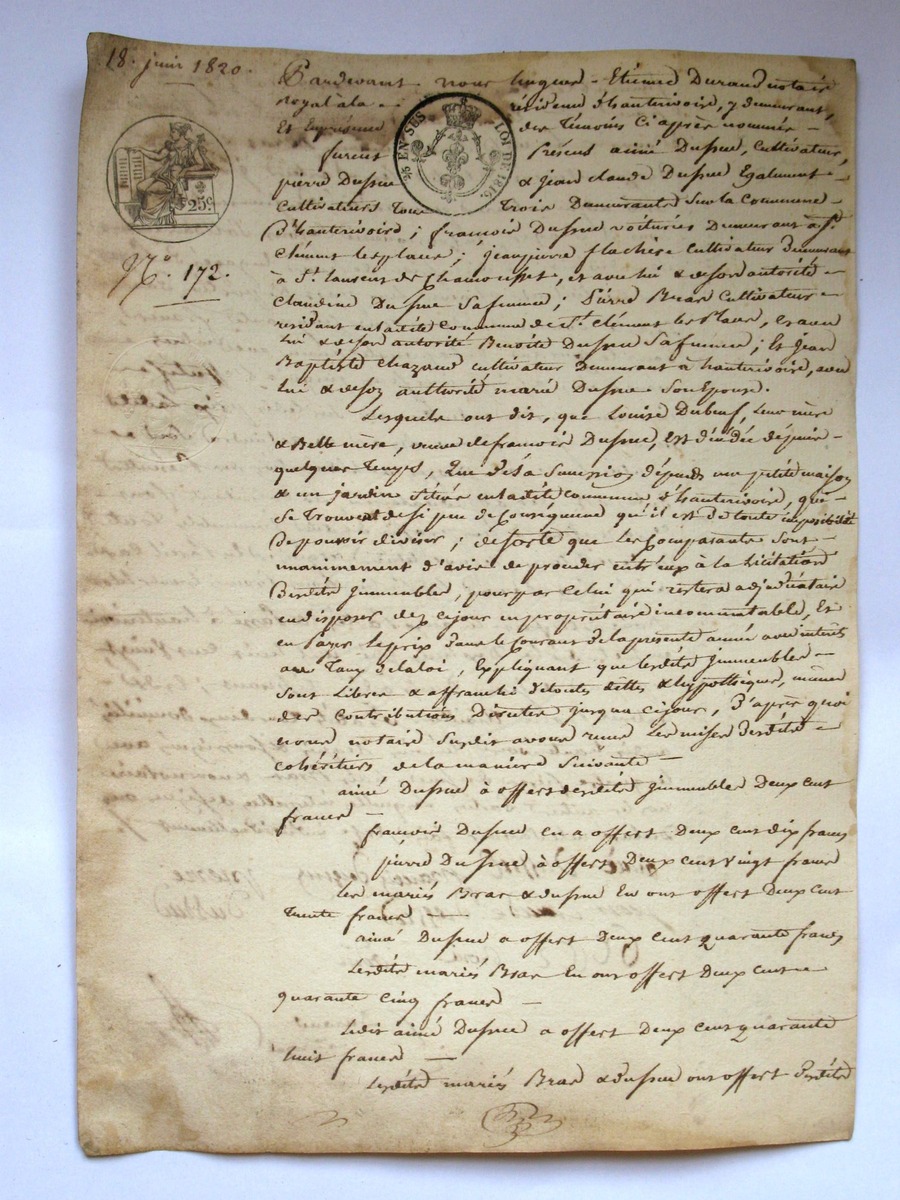 18. juin 1820.
Pardevant nous Hugues-Etienne Durand notaire
royal à la résidence d'hauterivoire, y demeurant,
Et En présence des Temoins Ci après nommés —
25 EN SUS
LOI DE 1816
furent Présens aimé Dupine, Cultivateur,
25c
pierre & jean claude Egalement
Cultivateurs Tous Trois Demeurants Sur la Commune
N.o 172.
D'hauterivoire; françois voiturier Demeurant à St.
Clément les places; jean pierre flachère Cultivateur Demeurant
à St. laurent de Chamousset, et avec lui & de son autorité
Claudine Sa femme; Pierre Bras Cultivateur
résidant en ladite Commune de St. Clément les Places, & avec
lui & de son autorité Benoite Sa femme; Et Jean
Baptiste Chazaud cultivateur Demeurant à hauterivoire, avec
lui & de son authorité marie Son Epouse.
Lesquels ont dit, que Louise Dubeuf, Leur mère
& Belle mère, veuve de francois Est décédée depuis
quelques Temps, Que de Sa Succession dépend une pétite maison
& un jardin Situés en ladite Commune d'hauterivoire, que
Se Trouvent de Si peu de Conséquence qu'il est de toute impossibilité
de pouvoir diviser; de sorte que Les Comparants Sont
unanimement d'avis de proceder entr'eux à la Licitation
Desdits Immeubles, pour par Celui qui restera adjudicataire
en disposer dez ce jour en propriétaire incommutable, Et
en Payer Le prix dans le Courant de la présente année avec intérêts
au Taux de la loi, Expliquant que lesdits Immeubles
Sont Libres & affranchis de toutes dettes & hypothèques, même
des Contributions Directes jusqu'a ce jour, D'après quoi
nous notaire Susdit avons reçu Les mises desdits
cohéritiers de la manière Suivante —
aimé à offert desdits Immeubles Deux cent
francs —
francois en a offert Deux cent dix francs
pierre à offert Deux cent vingt francs
Les mariés Bras & En ont offert Deux cent
Trente francs —
aimé a offert Deux cent quarante francs
Lesdits mariés Bras En ont offert Deux cent
quarante cinq francs —
Ledit aimé a offert Deux cent quarante
huit francs —
Lesdits mariés Bras & ont offert Desdits